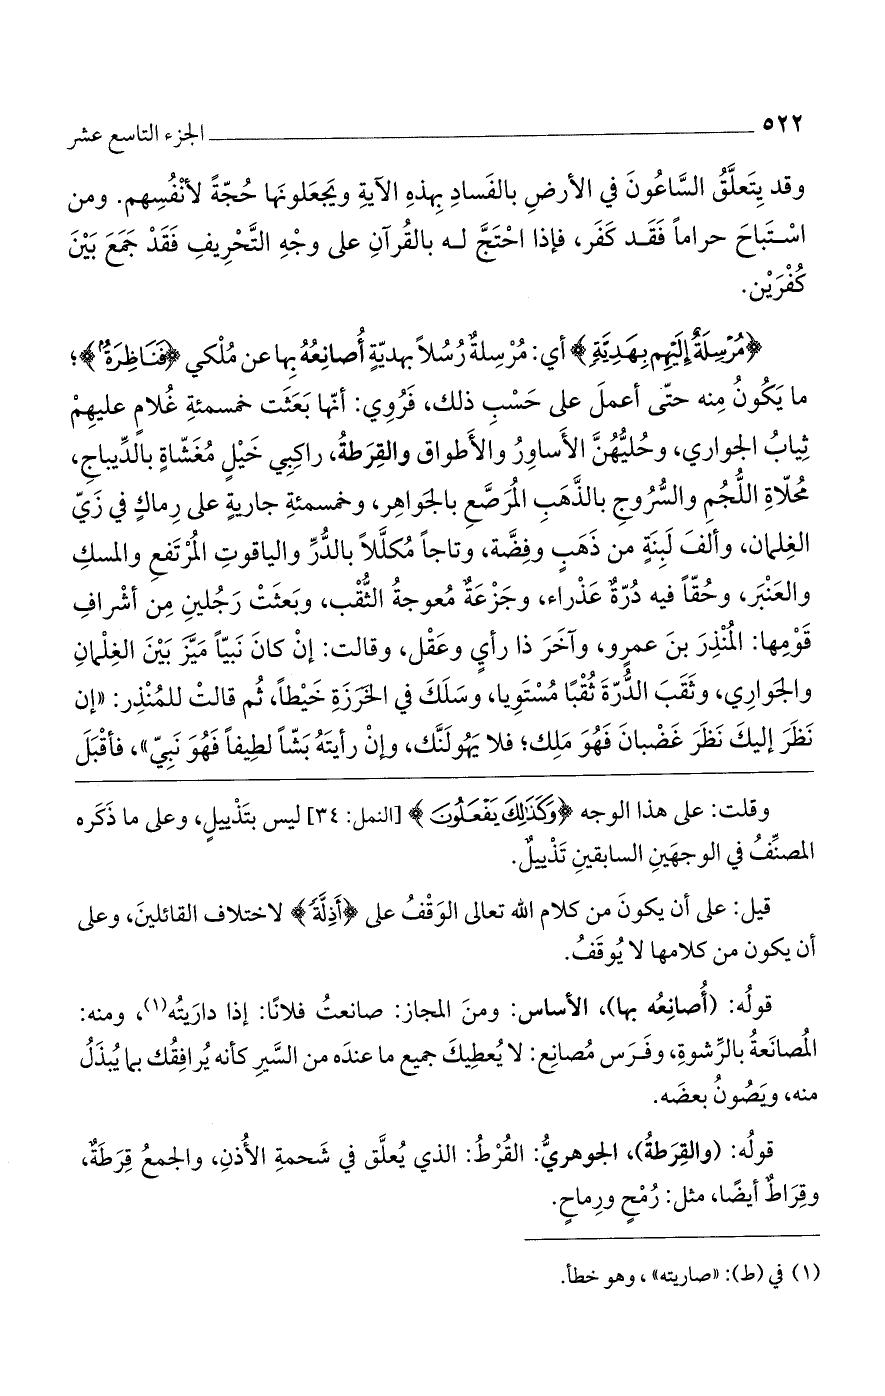 ٥٢٢ الجزء التاسع عشر
وقد يتَعلَّقُ السَّاعُونَ في الأرضِ بالفَسادِ بهذِهِ الآيةِ ويَجعَلونَها حُجّةً لأنْفُسِهم. ومن
اسْتَباحَ حراماً فَقَد كفَر، فإذا احْتَجَّ له بالقُرآنِ على وجْهِ التَّحْريفِ فَقَدْ جَمَعَ بَيْنَ
كُفْرَيْن.
﴿مُرْسِلَةٌ إِلَيْهِم بِهَدِيَّةٍ﴾ أي: مُرْسِلةٌ رُسُلاً بهديّةٍ أُصانِعُهُ بها عن مُلْكي ﴿فَنَاظِرَةٌ﴾؛
ما يَكُونُ مِنه حتّى أعملَ على حَسْبِ ذلك، فَرُوِي: أنّها بَعَثَت خمسمئةِ غُلامٍ عليهِمْ
ثِيابُ الجواري، وحُليُّهُنَّ الأساوِرُ والأَطواق والقِرَطةُ، راكِبِي خَيْلٍ مُغَشّاةٍ بالدِّيباجِ،
مُحلّاةِ اللُّجُمِ والسُّرُوجِ بالذَّهَبِ المُرَصَّعِ بالجَواهِر، وخمسمئةِ جاريةٍ على رِماكٍ في زَيّ
الغِلمان، وألفَ لَبِنَةٍ من ذَهَبٍ وفِضَّة، وتاجاً مُكلَّلاً بالدُّرِّ والياقوتِ المُرْتَفعِ والمسكِ
والعَنْبَر، وحُقّاً فيه دُرّةٌ عَذْراء، وجَزْعَةٌ مُعوجةُ الثُّقْب، وبَعثَتْ رَجُلينِ مِن أشْرافِ
قَوْمِها: المُنْذِرَ بنَ عمرٍو، وآخَرَ ذا رأيٍ وعَقْل، وقالت: إنْ كانَ نَبيّاً مَيَّزَ بَيْنَ الغِلْمانِ
والجَوارِي، وثَقَبَ الدُّرّةَ ثُقْبًا مُسْتَويا، وسَلَكَ في الخَرَزةِ خَيْطاً، ثُم قالتْ للمُنْذِر: «إن
نَظَرَ إليكَ نَظَرَ غَضْبانَ فَهُوَ مَلِك؛ فلا يَهُولَنَّك، وإنْ رأيتَهُ بَشّاً لطيفاً فَهُوَ نَبِيّ»، فأقْبَلَ
وقلت: على هذا الوجه ﴿وَكَذَٰلِكَ يَفْعَلُونَ﴾ [النمل: ٣٤] ليس بتَذْييلٍ، وعلى ما ذَكَره
المصنِّفُ في الوجهَينِ السابقينِ تَذْييلٌ.
قيل: على أن يكونَ من كلام الله تعالى الوَقْفُ على ﴿أَذِلَّةً﴾ لاختلاف القائلينَ، وعلى
أن يكون من كلامها لا يُوقَفُ.
قولُه: (أُصانِعُه بها)، الأساس: ومنَ المجاز: صانعتُ فلانًا: إذا دارَيتُه(١)، ومنه:
المُصانَعةُ بالرِّشوةِ، وفَرَس مُصانِع: لا يُعطِيكَ جميع ما عندَه من السَّيرِ كأنه يُرافِقُك بما يُبْذَلُ
منه، ويَصُونُ بعضَه.
قولُه: (والقِرَطةُ)، الجوهريُّ: القُرْطُ: الذي يُعلَّق في شَحمةِ الأُذنِ، والجمعُ قِرَطَةٌ،
وقِرَاطٌ أيضًا، مثل: رُمْحٍ ورِماحٍ.
(١) في (ط): «صاريته»، وهو خطأ.